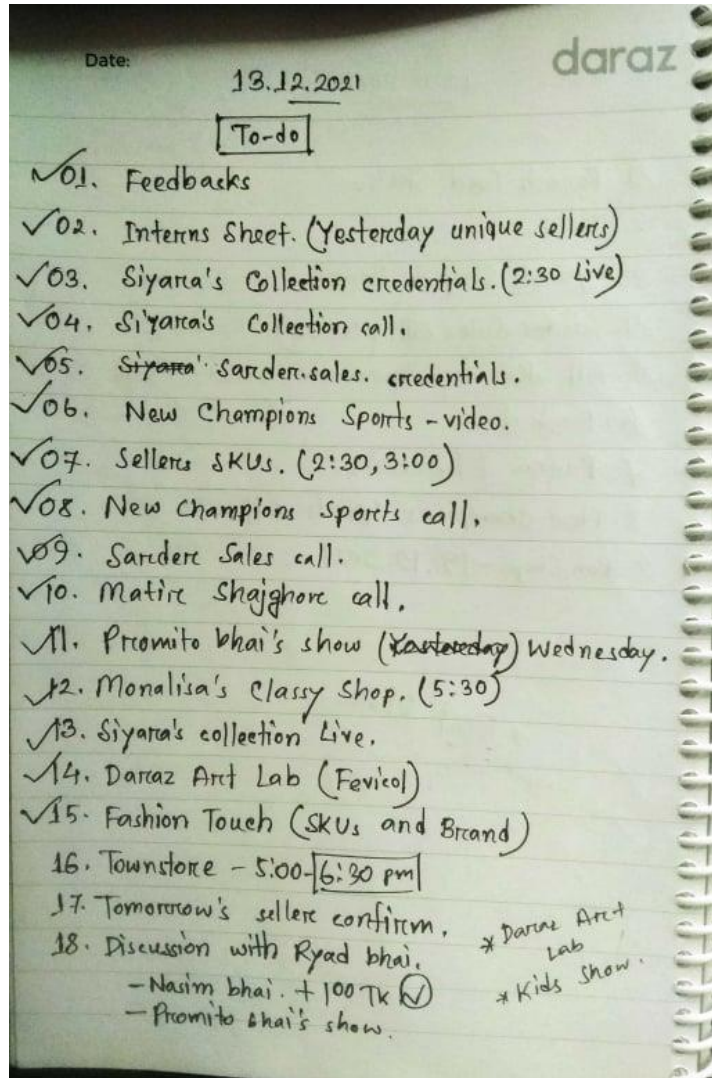 Date:
daraz
13.12.2021
To-do
01. Feedbacks
02. Interns Sheet. (Yesterday unique sellers)
03. Siyara's Collection credentials. (2:30 Live)
04. Siyara's Collection call.
05. Siyara' Sarder.sales. credentials.
06. New Champions Sports - video.
07. Sellers SKUs. (2:30, 3:00)
08. New Champions Sports call.
09. Sarder Sales call.
10. Matir Shajghor call.
11. Promito bhai's show (Yesterday) Wednesday.
12. Monalisa's Classy Shop. (5:30)
13. Siyara's collection Live.
14. Daraz Art Lab (Fevicol)
15. Fashion Touch (SKUs and Brand)
16. Townstore - 5:00-6:30 pm
17. Tomorrow's seller confirm.
18. Discussion with Ryad bhai.
- Nasim bhai. + 100 Tk ✓
- Promito bhai's show.
* Daraz Art
Lab
* Kids Show.